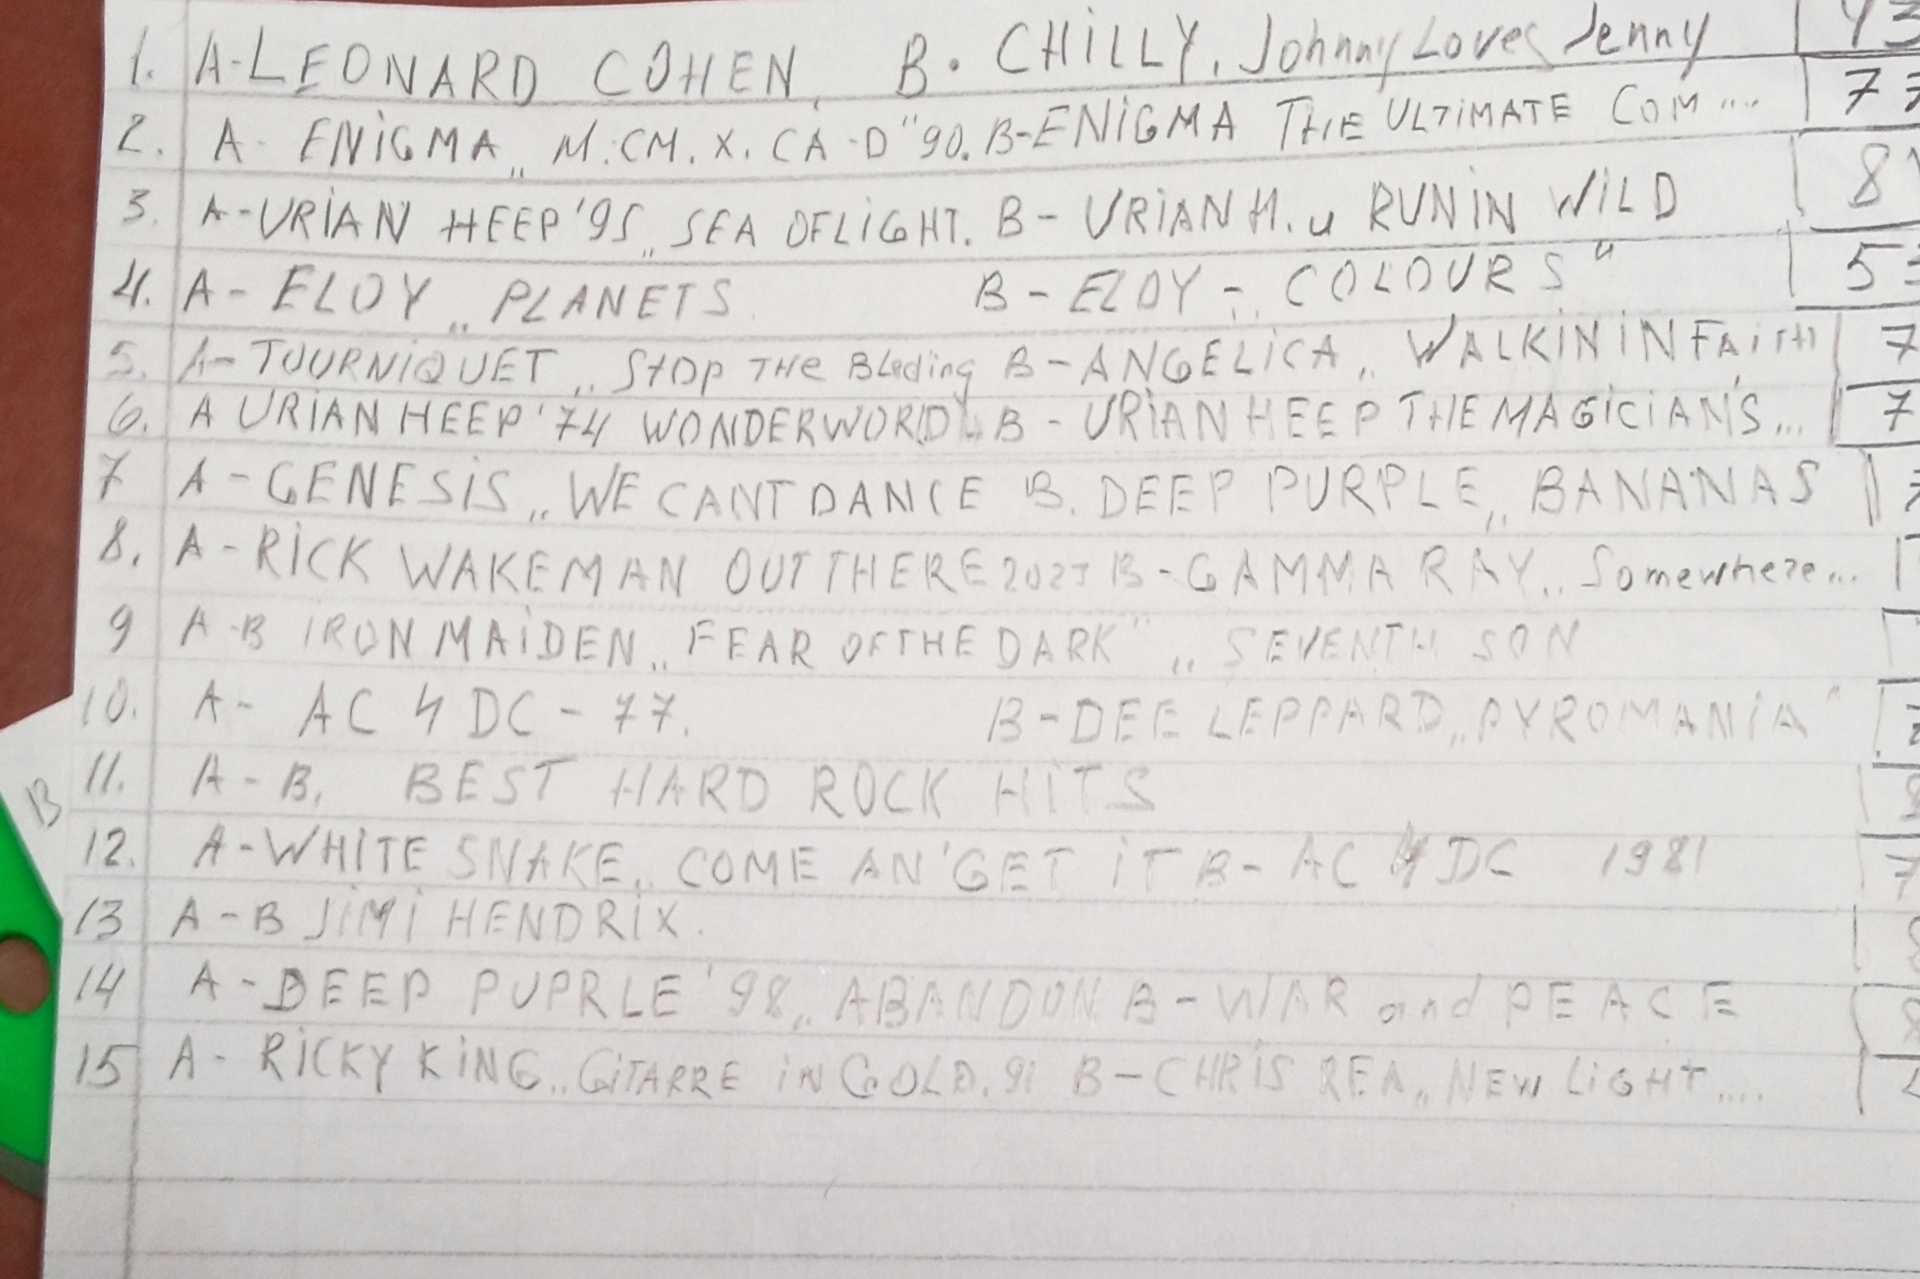 1. A-LEONARD COHEN, B. CHiLLY, Johnny Loves Jenny 43
2. A- ENiGMA ,, M.CM.X.CA-D" 90. B-ENiGMA THE ULTiMATE COM.... 77
3. A-URiAN HEEP '95 ,, SEA OFLiGHT. B- URiAN H. u RUNiN WiLD 8
4. A- ELOY ,, PLANETS. B- ELOY - ,, COLOURS" 55
5. A- TOURNiQUET ,, StOP THe BLeding B- ANGELiCA ,, WALKiN iN FAiTH 7
6. A URiAN HEEP '74 WONDERWORLD" B - URiAN HEEP THE MAGiCiAN'S... 7
7 A- GENESiS ,, WE CANT DANCE B. DEEP PURPLE ,, BANANAS 7
8. A- RiCK WAKEMAN OUT THERE B- GAMMA RAY ,, Somewhere...
9 A-B IRON MAiDEN ,, FEAR OF THE DARK" ,, SEVENTH SON
10. A- AC DC - 77. B- DEE LEPPARD ,, PYROMANiA"
11. A- B, BEST HARD ROCK HiTS
12. A- WHiTE SNAKE ,, COME AN'GET iT B- AC DC 1981 7
13 A-B JiMi HENDRiX.
14 A- DEEP PUPRLE '98 ,, ABANDON B- WAR and PEACE
15 A- RiCKY KiNG ,, GiTARRE iN GOLD. 91 B- CHRiS REA ,, NEW LiGHT ....
B